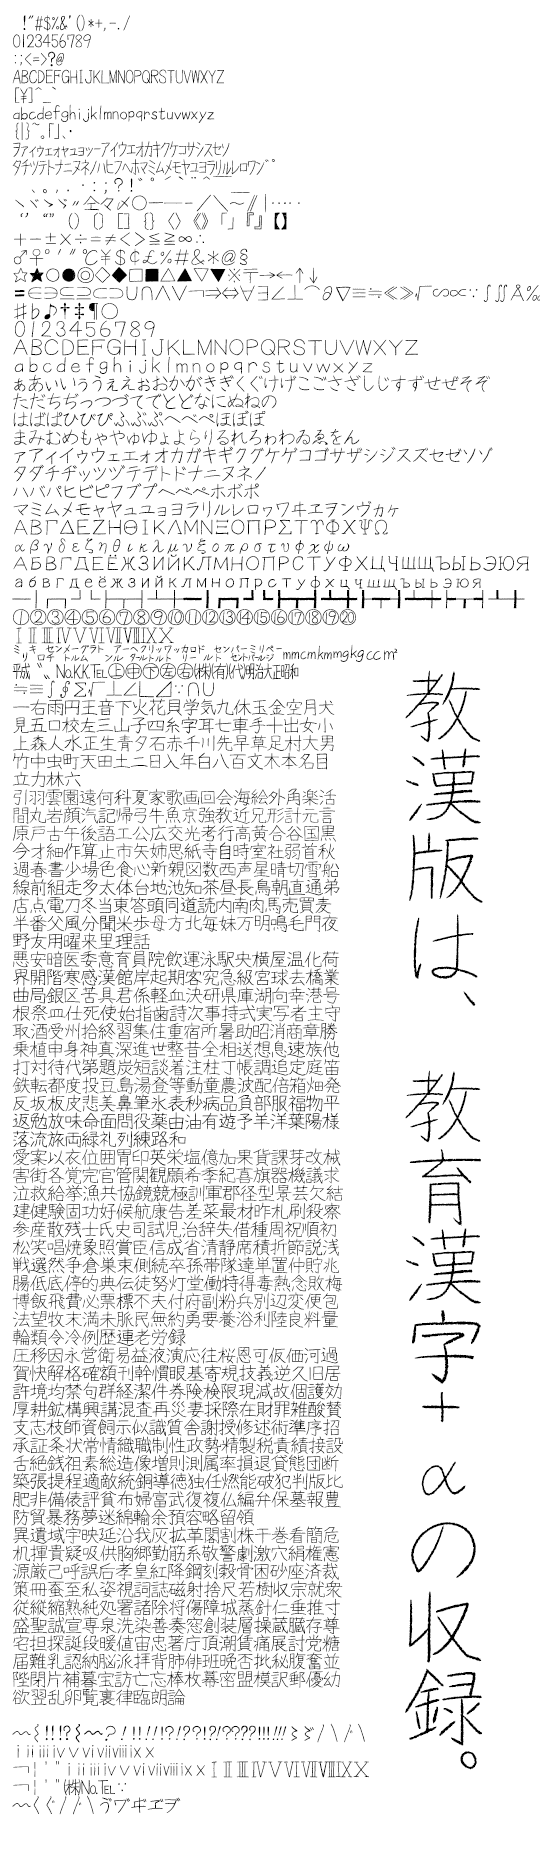 !"#$%&'()*+,-./
0123456789
:;<=>?@
ABCDEFGHIJKLMNOPQRSTUVWXYZ
[¥]^_`
abcdefghijklmnopqrstuvwxyz
{|}~。「」、・
ヲァィゥェォャュョッーアイウエオカキクケコサシスセソ
タチツテトナニヌネノハヒフヘホマミムメモヤユヨラリルレロワン゛゜
0123456789
ABCDEFGHIJKLMNOPQRSTUVWXYZ
abcdefghijklmnopqrstuvwxyz
ぁあぃいぅうぇえぉおかがきぎくぐけげこごさざしじすずせぜそぞ
ただちぢっつづてでとどなにぬねの
はばぱひびぴふぶぷへべぺほぼぽ
まみむめもゃやゅゆょよらりるれろゎわゐゑをん
ァアィイゥウェエォオカガキギクグケゲコゴサザシジスズセゼソゾ
タダチヂッツヅテデトドナニヌネノ
ハバパヒビピフブプヘベペホボポ
マミムメモャヤュユョヨラリルレロヮワヰヱヲンヴヵヶ
ΑΒΓΔΕΖΗΘΙΚΛΜΝΞΟΠΡΣΤΥΦΧΨΩ
αβγδεζηθικλμνξοπρστυφχψω
АБВГДЕЁЖЗИЙКЛМНОПРСТУФХЦЧШЩЪЫЬЭЮЯ
абвгдеёжзийклмнопрстуфхцчшщъыьэюя
①②③④⑤⑥⑦⑧⑨⑩⑪⑫⑬⑭⑮⑯⑰⑱⑲⑳
ⅠⅡⅢⅣⅤⅥⅦⅧⅨⅩ
一右雨円王音下火花貝学気九休玉金空月犬
見五口校左三山子四糸字耳七車手十出女小
上森人水正生青夕石赤千川先早草足村大男
竹中虫町天田土二日入年白八百文木本名目
立力林六
引羽雲園遠何科夏家歌画回会海絵外角楽活
間丸岩顔汽記帰弓牛魚京強教近兄形計元言
原戸古午後語工公広交光考行高黄合谷国黒
今才細作算止市矢姉思紙寺自時室社弱首秋
週春書少場色食心新親図数西声星晴切雪船
線前組走多太体台地池知茶昼長鳥朝直通弟
店点電刀冬当東答頭同道読内南肉馬売買麦
半番父風分聞米歩母方北毎妹万明鳴毛門夜
野友用曜来里理話
悪安暗医委意育員院飲運泳駅央横屋温化荷
界開階寒感漢館岸起期客究急級宮球去橋業
曲局銀区苦具君係軽血決研県庫湖向幸港号
根祭皿仕死使始指歯詩次事持式実写者主守
取酒受州拾終習集住重宿所暑助昭消商章勝
乗植申身神真深進世整昔全相送想息速族他
打対待代第題炭短談着注柱丁帳調追定庭笛
鉄転都度投豆島湯登等動童農波配倍箱畑発
反坂板皮悲美鼻筆氷表秒病品負部服福物平
返勉放味命面問役薬由油有遊予羊洋葉陽様
落流旅両緑礼列練路和
愛案以衣位囲胃印英栄塩億加果貨課芽改械
害街各覚完官管関観願希季紀喜旗器機議求
泣救給挙漁共協鏡競極訓軍郡径型景芸欠結
建健験固功好候航康告差菜最材昨札刷殺察
参産散残士氏史司試児治辞失借種周祝順初
松笑唱焼象照賞臣信成省清静席積折節説浅
戦選然争倉巣束側続卒孫帯隊達単置仲貯兆
腸低底停的典伝徒努灯堂働特得毒熱念敗梅
博飯飛費必票標不夫付府副粉兵別辺変便包
法望牧末満未脈民無約勇要養浴利陸良料量
輪類令冷例歴連老労録
圧移因永営衛易益液演応往桜恩可仮価河過
賀快解格確額刊幹慣眼基寄規技義逆久旧居
許境均禁句群経潔件券険検限現減故個護効
厚耕鉱構興講混査再災妻採際在財罪雑酸賛
支志枝師資飼示似識質舎謝授修述術準序招
承証条状常情織職制性政勢精製税責績接設
舌絶銭祖素総造像増則測属率損退貸態団断
築張提程適敵統銅導徳独任燃能破犯判版比
肥非備俵評貧布婦富武復複仏編弁保墓報豊
防貿暴務夢迷綿輸余預容略留領
異遺域宇映延沿我灰拡革閣割株干巻看簡危
机揮貴疑吸供胸郷勤筋系敬警劇激穴絹権憲
源厳己呼誤后孝皇紅降鋼刻穀骨困砂座済裁
策冊蚕至私姿視詞誌磁射捨尺若樹収宗就衆
従縦縮熟純処署諸除将傷障城蒸針仁垂推寸
盛聖誠宣専泉洗染善奏窓創装層操蔵臓存尊
宅担探誕段暖値宙忠著庁頂潮賃痛展討党糖
届難乳認納脳派拝背肺俳班晩否批秘腹奮並
陛閉片補暮宝訪亡忘棒枚幕密盟模訳郵優幼
欲翌乱卵覧裏律臨朗論
教漢版は、
教育漢字+αの収録。